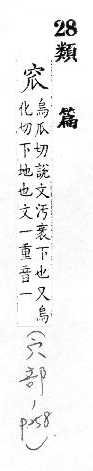 28 類篇
窊
烏瓜切說文汚衺下也又烏
化切下地也文一重音一
(穴部, p258)